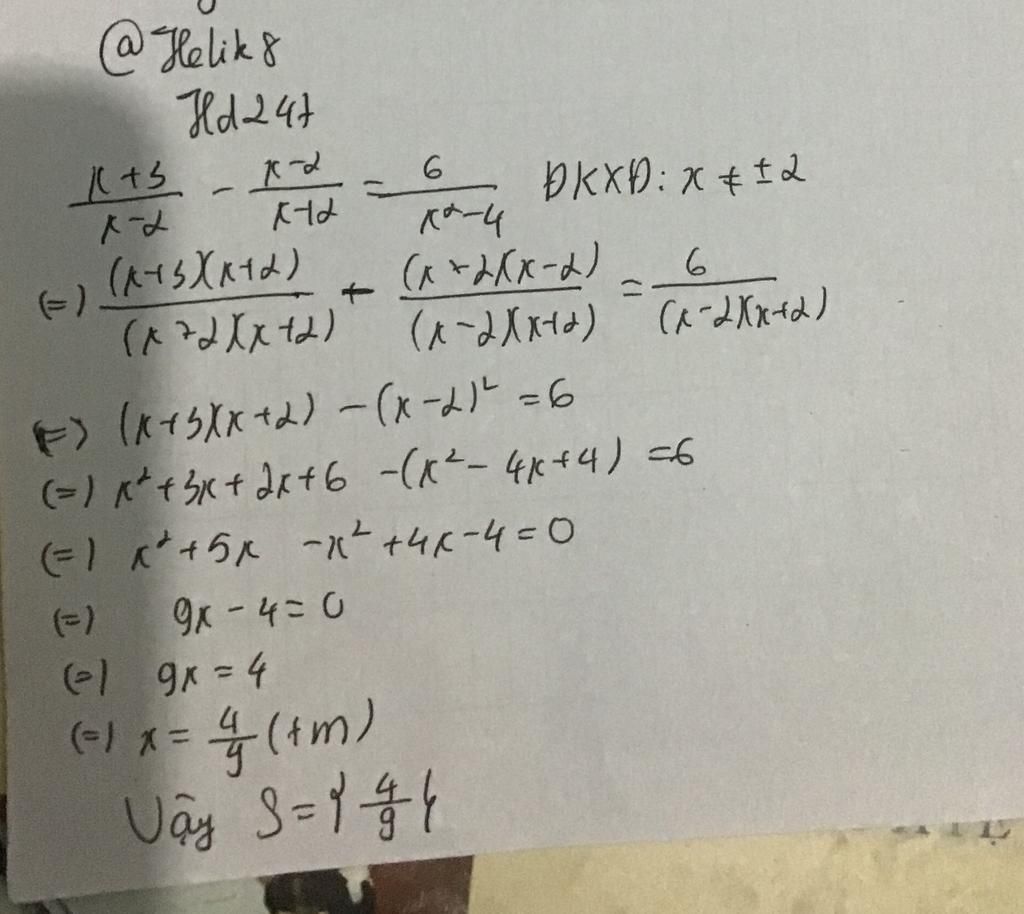 @Helik8
Hd247
x+3/x-2 - x-2/x+2 = 6/x²-4 ĐKXĐ: x ≠ ±2
(=) (x+3)(x+2)/(x-2)(x+2) - (x-2)(x-2)/(x-2)(x+2) = 6/(x-2)(x+2)
(=) (x+3)(x+2) -(x-2)² =6
(=) x²+3x+2x+6 -(x²-4x+4) =6
(=) x²+5x -x²+4x-4=0
(=) 9x-4=0
(=) 9x=4
(=) x=4/9 (tm)
Vậy S={4/9}